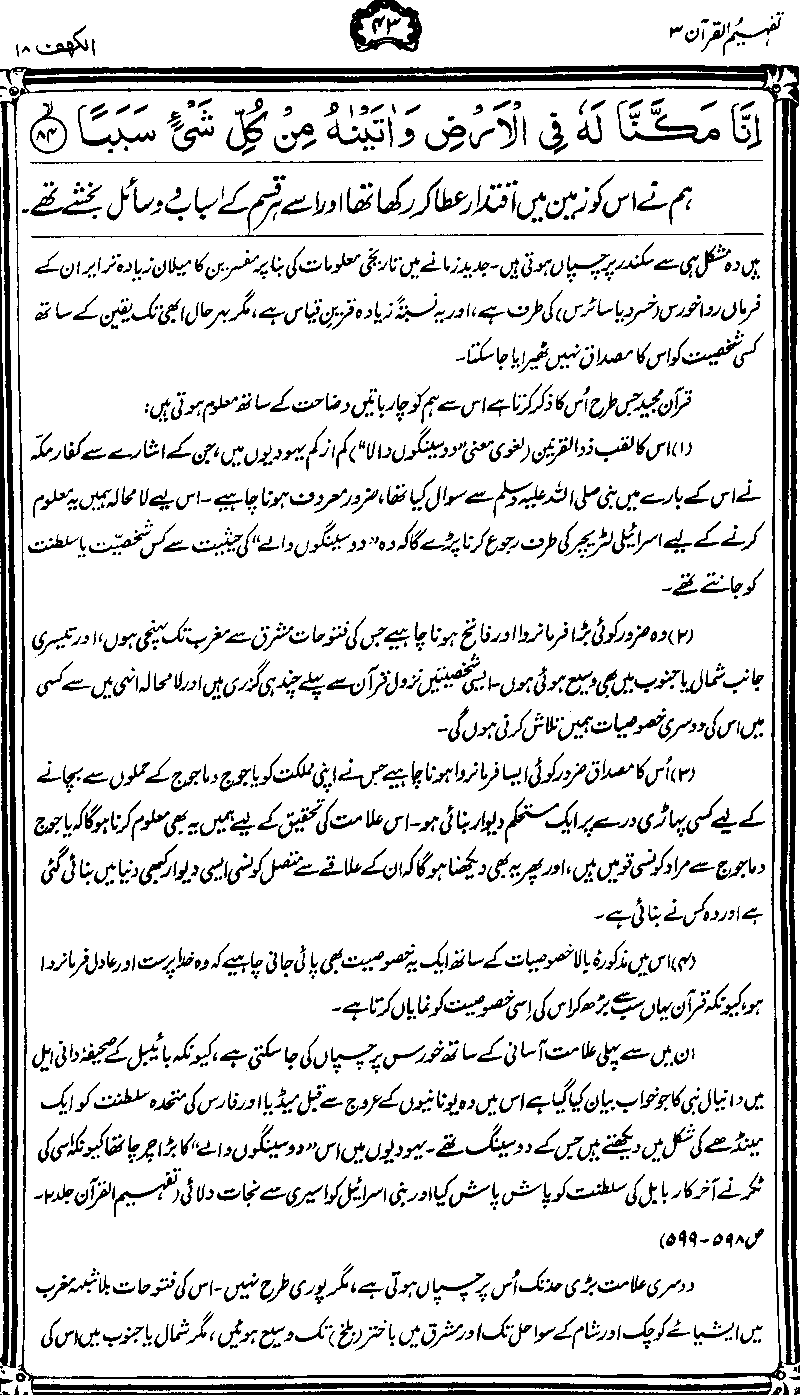 تفہیم القرآن ۳
۴۳
الکہف ۱۸
اِنَّا مَكَّنَّا لَهٗ فِی الْاَرْضِ وَاٰتَیْنٰهُ مِنْ كُلِّ شَیْءٍ سَبَبًا ۙ﴿۸۴﴾
ہم نے اس کو زمین میں اقتدار عطا کر رکھا تھا اور اسے ہر قسم کے اسباب و وسائل بخشے تھے۔
ہیں وہ مشکل ہی سے سکندر پر چسپاں ہوتی ہیں۔ جدید زمانے میں تاریخی معلومات کی بنا پر مفسرین کا میلان زیادہ تر ایران کے
فرماں روا خورس (خسرو یا سائرس) کی طرف ہے، اور یہ نسبتہً زیادہ قرین قیاس ہے، مگر بہر حال ابھی تک یقین کے ساتھ
کسی شخصیت کو اس کا مصداق نہیں ٹھیرایا جا سکتا۔
قرآن مجید جس طرح اُس کا ذکر کرتا ہے اس سے ہم کو چار باتیں وضاحت کے ساتھ معلوم ہوتی ہیں:
(۱) اس کا لقب ذو القرنین (لغوی معنی ”دو سینگوں والا“) کم از کم یہودیوں میں، جن کے اشارے سے کفار مکہ
نے اس کے بارے میں نبی صلی اللہ علیہ وسلم سے سوال کیا تھا، ضرور معروف ہونا چاہیے۔ اس لیے لامحالہ ہمیں یہ معلوم
کرنے کے لیے اسرائیلی لٹریچر کی طرف رجوع کرنا پڑے گا کہ وہ ”دو سینگوں والے“ کی حیثیت سے کس شخصیت یا سلطنت
کو جانتے تھے۔
(۲) وہ ضرور کوئی بڑا فرمانروا اور فاتح ہونا چاہیے جس کی فتوحات مشرق سے مغرب تک پہنچی ہوں، اور تیسری
جانب شمال یا جنوب میں بھی وسیع ہوئی ہوں۔ ایسی شخصیتیں نزول قرآن سے پہلے چند ہی گزری ہیں اور لامحالہ انہی میں سے کسی
میں اس کی دوسری خصوصیات ہمیں تلاش کرنی ہوں گی۔
(۳) اُس کا مصداق ضرور کوئی ایسا فرمانروا ہونا چاہیے جس نے اپنی مملکت کو یاجوج و ماجوج کے حملوں سے بچانے
کے لیے کسی پہاڑی درے پر ایک مستحکم دیوار بنائی ہو۔ اس علامت کی تحقیق کے لیے ہمیں یہ بھی معلوم کرنا ہوگا کہ یاجوج
و ماجوج سے مراد کونسی قومیں ہیں، اور پھر یہ بھی دیکھنا ہوگا کہ ان کے علاقے سے متصل کونسی ایسی دیوار کبھی دنیا میں بنائی گئی
ہے اور وہ کس نے بنائی ہے۔
(۴) اس میں مذکورۂ بالا خصوصیات کے ساتھ ایک یہ خصوصیت بھی پائی جانی چاہیے کہ وہ خدا پرست اور عادل فرمانروا
ہو، کیونکہ قرآن یہاں سب سے بڑھ کر اس کی اِسی خصوصیت کو نمایاں کرتا ہے۔
ان میں سے پہلی علامت آسانی کے ساتھ خورس پر چسپاں کی جا سکتی ہے، کیونکہ بائیبل کے صحیفۂ دانی ایل
میں دانیال نبی کا جو خواب بیان کیا گیا ہے اس میں وہ یونانیوں کے عروج سے قبل میڈیا اور فارس کی متحدہ سلطنت کو ایک
مینڈھے کی شکل میں دیکھتے ہیں جس کے دو سینگ تھے۔ یہودیوں میں اس ”دو سینگوں والے“ کا بڑا چرچا تھا کیونکہ اسی کی
ٹکر نے آخر کار بابل کی سلطنت کو پاش پاش کیا اور بنی اسرائیل کو اسیری سے نجات دلائی (تفہیم القرآن جلد ۲۔
ص ۵۹۸-۵۹۹)
دوسری علامت بڑی حد تک اُس پر چسپاں ہوتی ہے، مگر پوری طرح نہیں۔ اس کی فتوحات بلاشبہ مغرب
میں ایشیائے کوچک اور شام کے سواحل تک اور مشرق میں باختر (بلخ) تک وسیع ہوئیں، مگر شمال یا جنوب میں اس کی